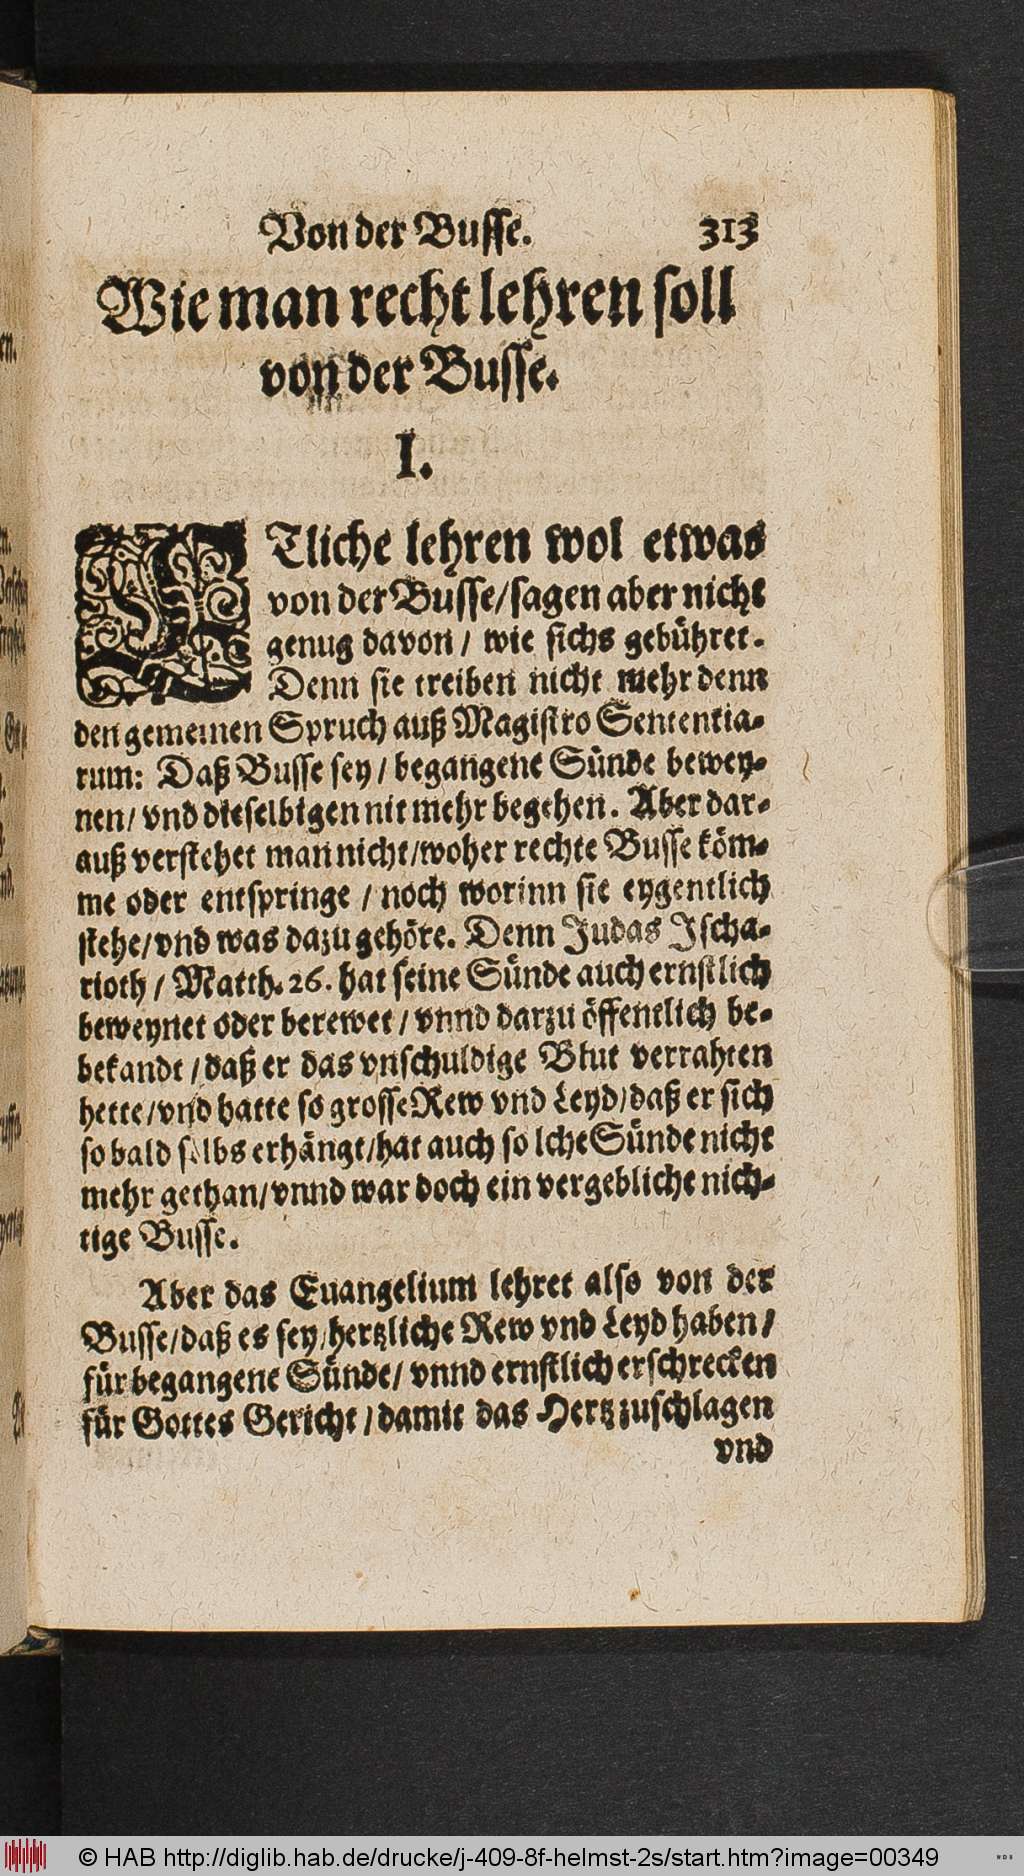 Von der Busse. 313
Wie man recht lehren soll
von der Busse.
I.
ETliche lehren wol etwas
von der Busse/ sagen aber nicht
genug davon/ wie sichs gebühret.
Denn sie treiben nicht mehr denn
den gemeinen Spruch auß Magistro Sententia-
rum: Daß Busse sey/ begangene Sünde bewey-
nen/ vnd dieselbigen nit mehr begehen. Aber dar-
auß verstehet man nicht/ woher rechte Busse köm-
me oder entspringe/ noch worinn sie eygentlich
stehe/ vnd was dazu gehöre. Denn Judas Ischa-
rioth/ Matth. 26. hat seine Sünde auch ernstlich
beweynet oder berewet/ vnnd darzu öffentlich be-
bekandt/ daß er das vnschuldige Blut verrahten
hette/ vnd hatte so grosse Rew vnd Leyd/ daß er sich
so bald selbs erhängt/ hat auch solche Sünde nicht
mehr gethan/ vnnd war doch ein vergebliche nich-
tige Busse.
Aber das Euangelium lehret also von der
Busse/ daß es sey/ hertzliche Rew vnd Leyd haben/
für begangene Sünde/ vnnd ernstlich erschrecken
für Gottes Gericht/ damit das Hertz zuschlagen
vnd
© HAB http://diglib.hab.de/drucke/j-409-8f-helmst-2s/start.htm?image=00349